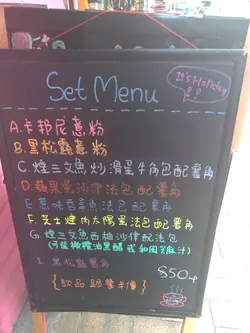 Set Menu
It's Holiday
A.卡邦尼意粉
B.黑松露意粉
C.煙三文魚炒滑蛋牛角包配薯角
D.蘋果蜜沙律法包配薯角
E.意味吞拿魚法包配薯角
F.芝士煙肉太陽蛋法包配薯角
G.煙三文魚西柚沙律配法包
(可配橄欖油黑醋或和風芝麻汁)
I.黑松露薯角
850
{飲品跟餐半價}